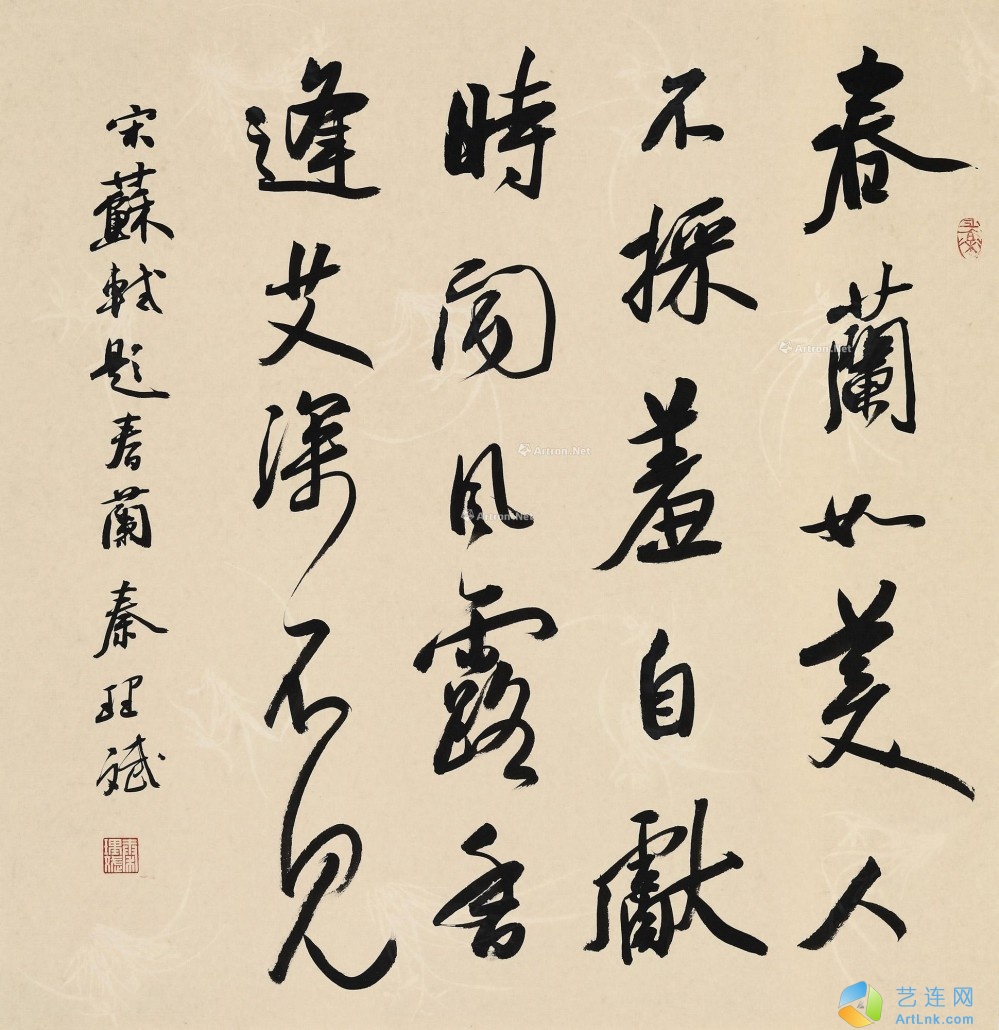 春蘭如美人
不採羞自獻
時聞風露香
逢艾深不見
宋蘇軾題春蘭秦理斌
Artron.Net
Artron.Net
Artron.Net
艺连网
ArtLnk.com